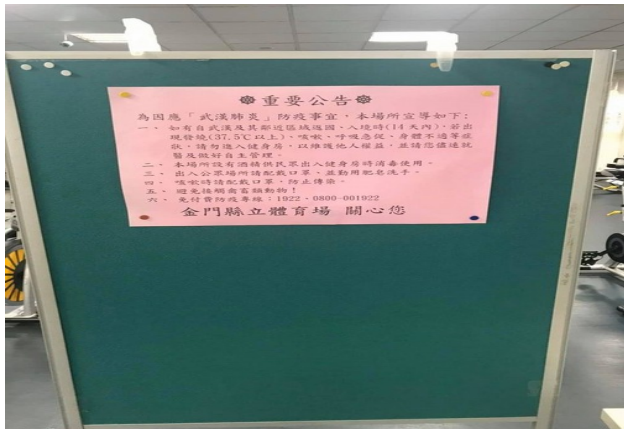 ❁重要公告❁
為因應「武漢肺炎」防疫事宜，本場所宣導如下：
一、如有自武漢及其鄰近區域返國、入境時(14天內)，若出
現發燒(37.5℃以上)、咳嗽、呼吸急促、身體不適等症
狀，請勿進入健身房，以維護他人權益，並請您儘速就
醫及做好自主管理。
二、本場所設有酒精供民眾出入健身房時消毒使用。
三、出入公眾場所請配戴口罩、並勤用肥皂洗手。
四、咳嗽時請配戴口罩，防止傳染。
五、避免接觸禽畜類動物！
六、免付費防疫專線：1922、0800-001922
金門縣立體育場 關心您